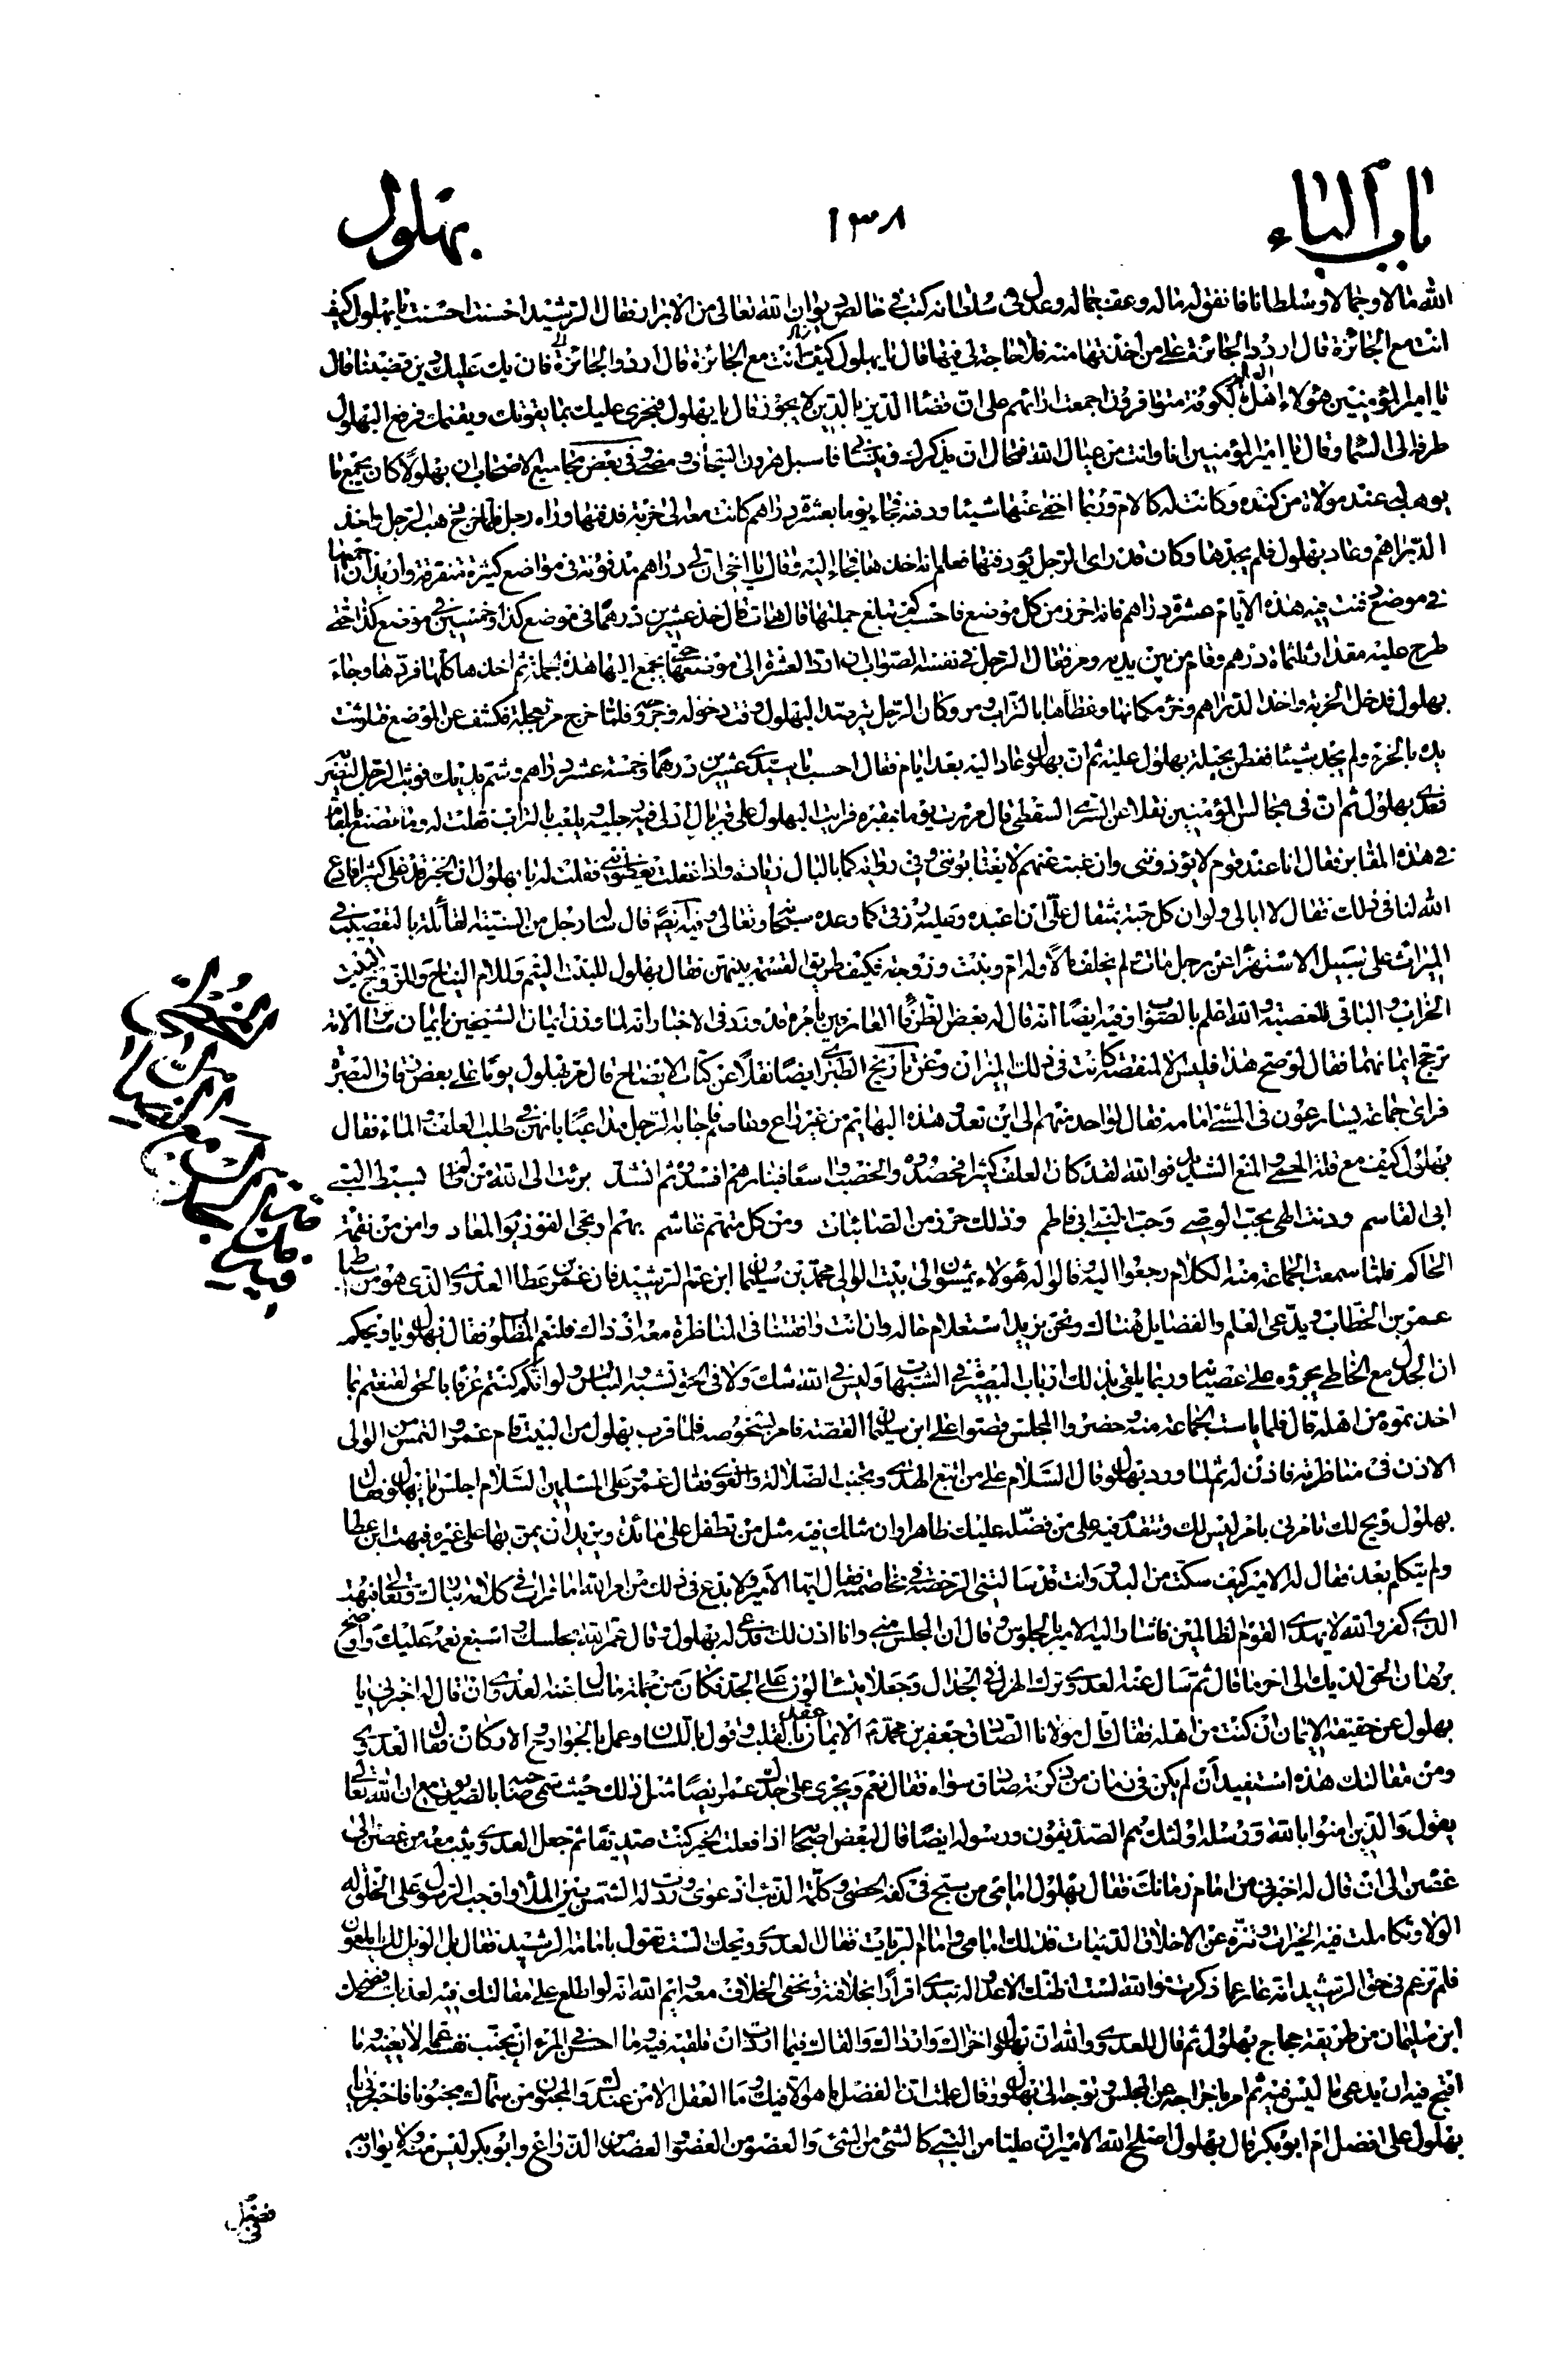 باب الباء
١٣٨
بهلول
الله مالا وجمالا وسلطانا فانفق ماله وعف جماله وعدل فى سلطانه كتب فى خالص ديوان الله تعالى من الابرار فقال الرشيد احسنت احسنت يا بهلول كيف
انت مع الجائزة قال اردد الجائزة على من اخذتها منه فلا حاجة لى فيها قال يا بهلول كيف انت مع الجائزة قال اردد الجائزة فان يك عليك دين قضيناه قال
يا امير المؤمنين هؤلاء اهل الكوفة متوافرون اجمعت ارائهم على ان قضاء الدين بالدين لا يجوز قال يا بهلول فنجرى عليك بما يقوتك ويقيمك فرفع البهلول
طرفه الى السماء وقال يا امير المؤمنين انا وانت من عيال الله فمحال ان يذكرك وينسانى فاسبل هرون السجاف ومضى وفى بعض مجاميع الاصحاب ان بهلولا كان يجمع ما
يوهب له عند مولاة من كنده وكانت له كالام وربما اخفى عنها شيئا ودفنه فجاء يوما بعشرة دراهم كانت معه الى خربة فدفنها وراه رجل فلما خرج ذهب الرجل واخذ
الدراهم وعاد بهلول فلم يجدها وكان قد راى الرجل يوم دفنها فعلم انه اخذها فجاء اليه وقال يا اخى ان لى دراهم مدفونة فى مواضع كثيرة متفرقة واريد ان اجمعها
فى موضع دفنت فيه هذه الايام عشرة دراهم فانه احرز من كل موضع فاحسب كم تبلغ جملتها قال هات قال خذ عشرين درهما فى موضع كذا وخمسين فى موضع كذا حتى
طرح عليه مقدار ثلثمائة درهم وقام من بين يديه ومر فقال الرجل فى نفسه الصواب ان ارد العشرة الى موضعها حتى يجمع اليها هذه الجملة ثم اخذها كلها فردها وجاء
بهلول فدخل الخربة واخذ الدراهم وخرء مكانها وغطاها بالتراب ومر وكان الرجل يترصد البهلول وقت دخوله وخروجه فلما خرج مر بعجلة فكشف عن الموضع فتلوثت
يده بالخرء ولم يجد شيئا ففطن بحيلة بهلول عليه ثم ان بهلول عاد اليه بعد ايام فقال احسب يا سيدى عشرين درهما وخمسة عشر دراهم وشم يديك فوثب الرجل ليضربه
فعدى بهلول ثم ان فى مجالس المؤمنين نقلا عن السرى السقطى قال مررت يوما بمقبرة فرايت البهلول على قبر قد ادلى فيه رجليه يلعب بالتراب فقلت له وما تصنع
فى هذه المقابر فقال انا عند قوم لا يؤذوننى وان غبت عنهم لا يغتابوننى وفى رواية كما بالبال زيادة واذا غفلت يعظوننى فقلت له يا بهلول ان الخبز قد غلى
الله لنا فى ذلك فقال لا ابالى ولو ان كل حبة بمثقال على ان اعبده وعليه رزقى كما وعده سبحانه وتعالى وفيه ايضا قال رجل من السنة القائلة بالتعصيب فى
الميراث على سبيل الاستهزاء عن رجل مات لم يخلف مالا وله ام وبنت وزوجة فكيف طريق القسمة بينهن فقال بهلول للبنت اليتم وللام النياح وللزوج البيت
الخراب والباقى للعصبة والله اعلم بالصواب وفيه ايضا انه قال له بعض الظرفاء العارفين بامره قد ورد فى الاخبار انه لما وزن ايمان الشيخين بايمان سائر الامة
ترجح ايمانهما فقال لو صح هذا فليس الا لمنقصة كانت فى ذلك الميزان وعن تاريخ الطبرى ايضا نقلا عن كتاب الايضاح قال مر بهلول يوما على بعض زقاق البصره
فراى جماعة يسارعون فى المشى امامه فقال لواحد منهم الى اين تعدو هذه البهائم من غير راع فاجابه الرجل مداعبا بانهن فى طلب العلف والماء فقال
بهلول كيف مع قلة الحمى والمنع الشديد فوالله لقد كان العلف كثيرا فحصدوه والخصب واسعا فبنارهم افسدوه ثم انشد برئت الى الله من ظالم لسبط النبى
ابى القاسم ودنت الهى بحب الوصى وحب النبى ابى فاطم وذلك حرز من النائبات ومن كل متهم غاشم بهم ارتجى الفوز يوم المعاد وامن من نقمة
الحاكم فلما سمعت الجماعة منه الكلام رجعوا اليه وقالوا له هؤلاء يمشون الى بيت الوالى محمد بن سليمان ابن عم الرشيد فان عمر بن عطاء العدوى الذى هو من اسباط
عمر بن الخطاب يدعى العلم والفضايل هناك ونحن نريد استعلام حاله وان انت وافقتنا فى المناظرة معه اذ ذاك فلنعم المطلوب فقال بهلول يا ويحكم
ان الجدل مع الخاطى يجرؤه على عصيانه وربما يلقى بذلك ارباب البصيرة فى الشبهات وليس فى الله شك ولا فى الحق تشبه والتباس ولو انكم كنتم عرفاء بالحق لقنعتم بما
اخذتموه من اهله قال فلما ياست الجماعة منه وحضروا المجلس وقصوا على ابن سليمان القصة فامر بشخوصه فلما قرب بهلول من البيت قام عمرو التمس من الوالى
الاذن فى مناظرته فاذن له ثم لما ورد بهلول وقال السلام على من اتبع الهدى وتجنب الضلالة والغوى فقال عمر وعلى المسلمين السلام اجلس يا بهلول فقال
بهلول ويح لك تامرنى بامر ليس لك وتتقدم فيه على من فضله عليك ظاهر وان مثلك فيه مثل من تطفل على مائدة ويريد ان يمن بها على غيره فبهت ابن عطا
ولم يتكلم بعد فقال له الامير كيف سكت من البدو وانت قد سالتنى الرخصة فى مخاصمته فقال ايها الامير ولا بدع فى ذلك من امر الله اما قرات فى كلام ربك وتعالى فبهت
الذى كفر والله لا يهدى القوم الظالمين فاشار اليه الامير بالجلوس وقال ان المجلس منى وانا اذن لك فدعى له بهلول وقال عمر الله مجلسك واسبغ نعمه عليك واوضح
برهان الحق لديك الى اخر ما قال ثم سال عنه العدوى ترك الهزل فى الجدال وجعلا يتسائلون على الجد فكان من جملة ما سال عنه العدوى ان قال له اخبرنى يا
بهلول عن حقيقة الايمان ان كنت من اهله فقال قال مولانا الصادق جعفر بن محمد ع الايمان عقد بالقلب وقول باللسان وعمل بالجوارح والاركان فقال العدوى
ومن مقالتك هذه استفيد ان لم يكن فى زمان من ذكرته صادق سواه فقال نعم ويجرى على جدك عمر ايضا مثل ذلك حيث سمى صاحبه بالصديق مع ان الله تعالى
يقول والذين امنوا بالله ورسله اولئك هم الصديقون ورسوله ايضا قال لبعض اصحابه اذا فعلت الخير كنت صديقا ثم جعل العدوى يثب معه من غصن الى
غصن الى ان قال له اخبرنى من امام زمانك فقال بهلول امامى من سبح فى كفه الحصى وكلمه الذئب اذ عوى وردت له الشمس بين الملا واوجب الرسول على الخلق له
الولاء وتكاملت فيه الخيرات وتنزه عن الاخلاق الدنيات فذلك امامى وامام البريات فقال العدوى ويحك الست تقول بامامة الرشيد فقال بل الويل لك يا ملعون
فلم تزعم فى حق الرشيد انه عار عما ذكرت فوالله لست اظنك الا عدوا له تبدى اقرارا بخلافته وتخفى الخلاف معه وايم الله انه لو اطلع على مقالتك فيه لعذبك فضحك
ابن سليمان من طريقة حجاج بهلول ثم قال للعدوى والله ان بهلول اخزاك والقاك فيما اردت ان تلقيه فيه وما احسن المرء ان يجنب نفسه عما لا يعنيه وما
اقبح فيه ان يدعى ما ليس فيه ثم امر باخراجه عن المجلس وتوجه الى بهلول وقال علمت ان الفضل ما هو الا فيك وما العقل الا من عندك والمجنون من سماك مجنونا فاخبرنى يا
بهلول على افضل ام ابو بكر قال بهلول اصلح الله الامير ان عليا من النبى كالشئ من الشئ والعضو من العضو والعضد من الذراع وابو بكر ليس منه ولا يوازيه
فضل